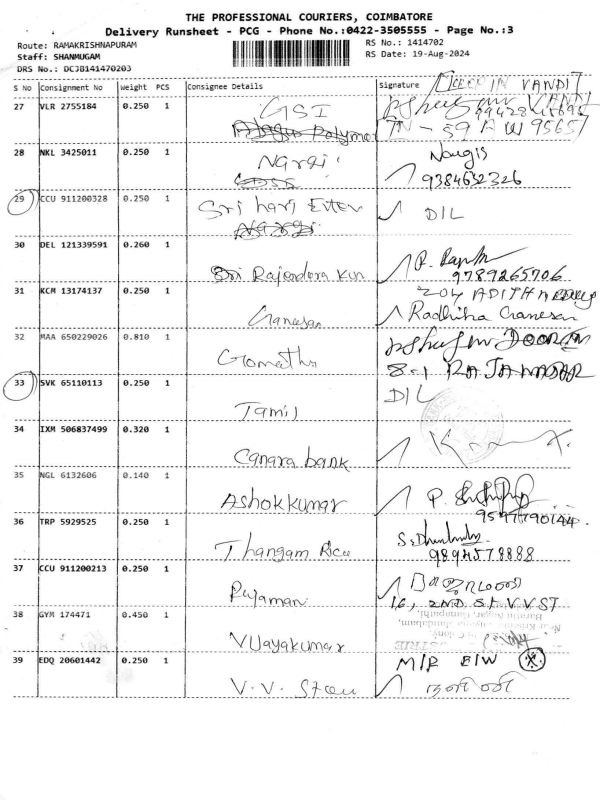 THE PROFESSIONAL COURIERS, COIMBATORE
Delivery Runsheet - PCG - Phone No.:0422-3505555 - Page No.:3
Route: RAMAKRISHNAPURAM
RS No.: 1414702
Staff: SHANMUGAM
RS Date: 19-Aug-2024
DRS No.: DCJB141470203
S No Consignment No Weight PCS Consignee Details Signature
KEEP IN VANDI
27 VLR 2755184 0.250 1 GSI
TN - 59 AW 9565
28 NKL 3425011 0.250 1 Nargis
9384652326
29 CCU 911200328 0.250 1 Sri hari Enter DIL
30 DEL 121339591 0.260 1
Sri Rajendera kun
9789265706
31 KCM 13174137 0.250 1 204 ADITHYA
Ganesan Radhika Ganesan
32 MAA 650229026 0.810 1 DOOR IN
Gomathi 8-1 RAJANAGAR
33 SVK 65110113 0.250 1 DIL
Tamil
34 IXM 506837499 0.320 1
Canara bank
35 NGL 6132606 0.140 1
Ashokkumar
36 TRP 5929525 0.250 1
Thangam Rice 9894578888
37 CCU 911200213 0.250 1
Rajamani 16, 2ND ST V.V ST
38 GYM 174471 0.450 1
Vijayakumar
39 EDQ 20601442 0.250 1 M/R E/W
V.V. Steel நளினி